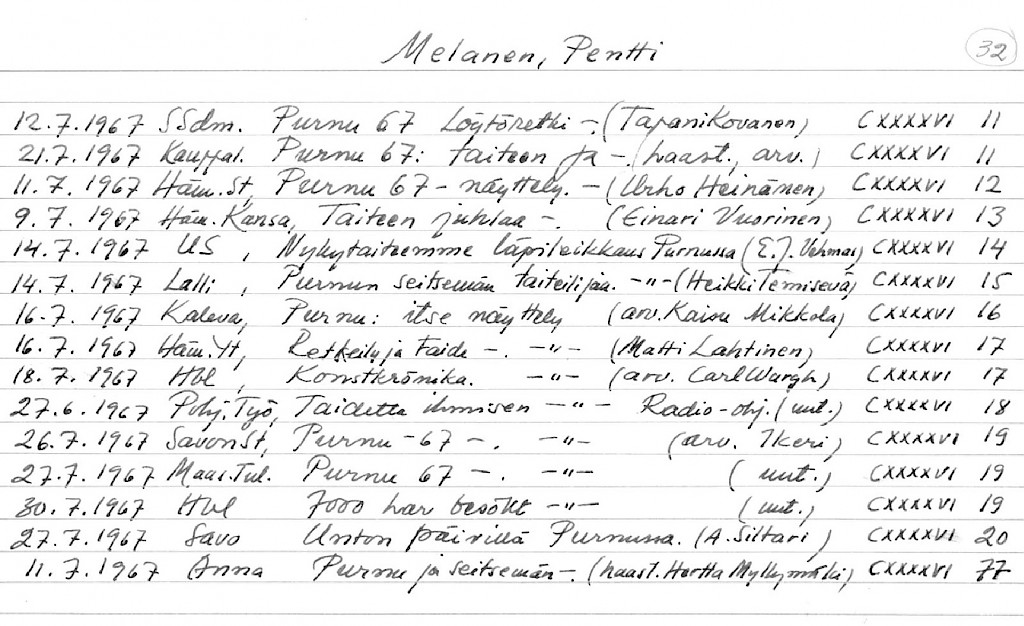 Melanen, Pentti 32
12.7.1967 SSdm. Purnu 67 Löytöretki -. (Tapani Kovanen) CXXXXVI 11
21.7.1967 Kauppal. Purnu 67: taiteen ja - (haast., arv.) CXXXXVI 11
11.7.1967 Häm.St, Purnu 67 - näyttely. - (Urho Heinänen) CXXXXVI 12
9.7.1967 Häm.Kansa, Taiteen juhlaa -. (Einari Vuorinen) CXXXXVI 13
14.7.1967 US, Nykytaiteemme läpileikkaus Purnussa (E.J. Vehmas) CXXXXVI 14
14.7.1967 Lalli, Purnun seitsemän taiteilijaa. -"- (Heikki Temisevä) CXXXXVI 15
16.7.1967 Kaleva, Purnu: itse näyttely (arv. Kaisu Mikkola) CXXXXVI 16
16.7.1967 Häm.Yt, Retkeily ja taide -. -"- (Matti Lahtinen) CXXXXVI 17
18.7.1967 Hbl, Konstkrönika. -"- (arv. Carl Wargh) CXXXXVI 17
27.6.1967 Pohj.Työ, Taidetta ihmisen -"- Radio-ohj. (uut.) CXXXXVI 18
26.7.1967 SavonSt, Purnu -67 -. -"- (arv. Ikeri) CXXXXVI 19
27.7.1967 Maas.Tul. Purnu 67 -. -"- (uut.) CXXXXVI 19
30.7.1967 Hbl 7000 har besökt -"- (uut.) CXXXXVI 19
27.7.1967 Savo Unton päivillä Purnussa. (A. Siltari) CXXXXVI 20
11.7.1967 Anna Purnu ja seitsemän -. (haast. Hertta Myllymäki) CXXXXVI 77